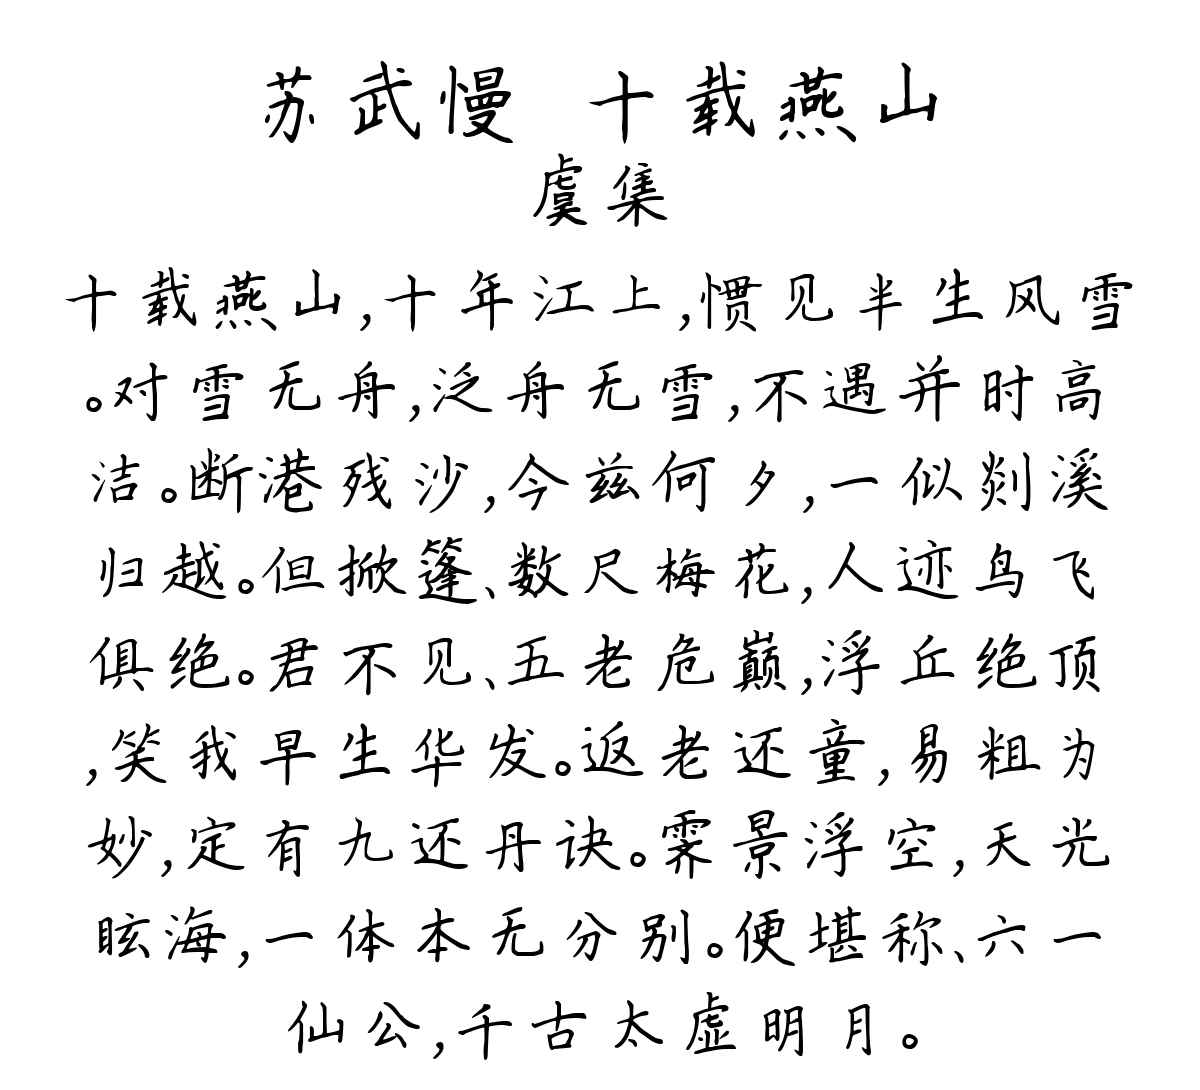 苏武慢 十载燕山
虞集
十载燕山,十年江上,惯见半生风雪
。对雪无舟,泛舟无雪,不遇并时高
洁。断港残沙,今兹何夕,一似剡溪
归越。但掀篷、数尺梅花,人迹鸟飞
俱绝。君不见、五老危巅,浮丘绝顶
,笑我早生华发。返老还童,易粗为
妙,定有九还丹诀。霁景浮空,天光
眩海,一体本无分别。便堪称、六一
仙公,千古太虚明月。